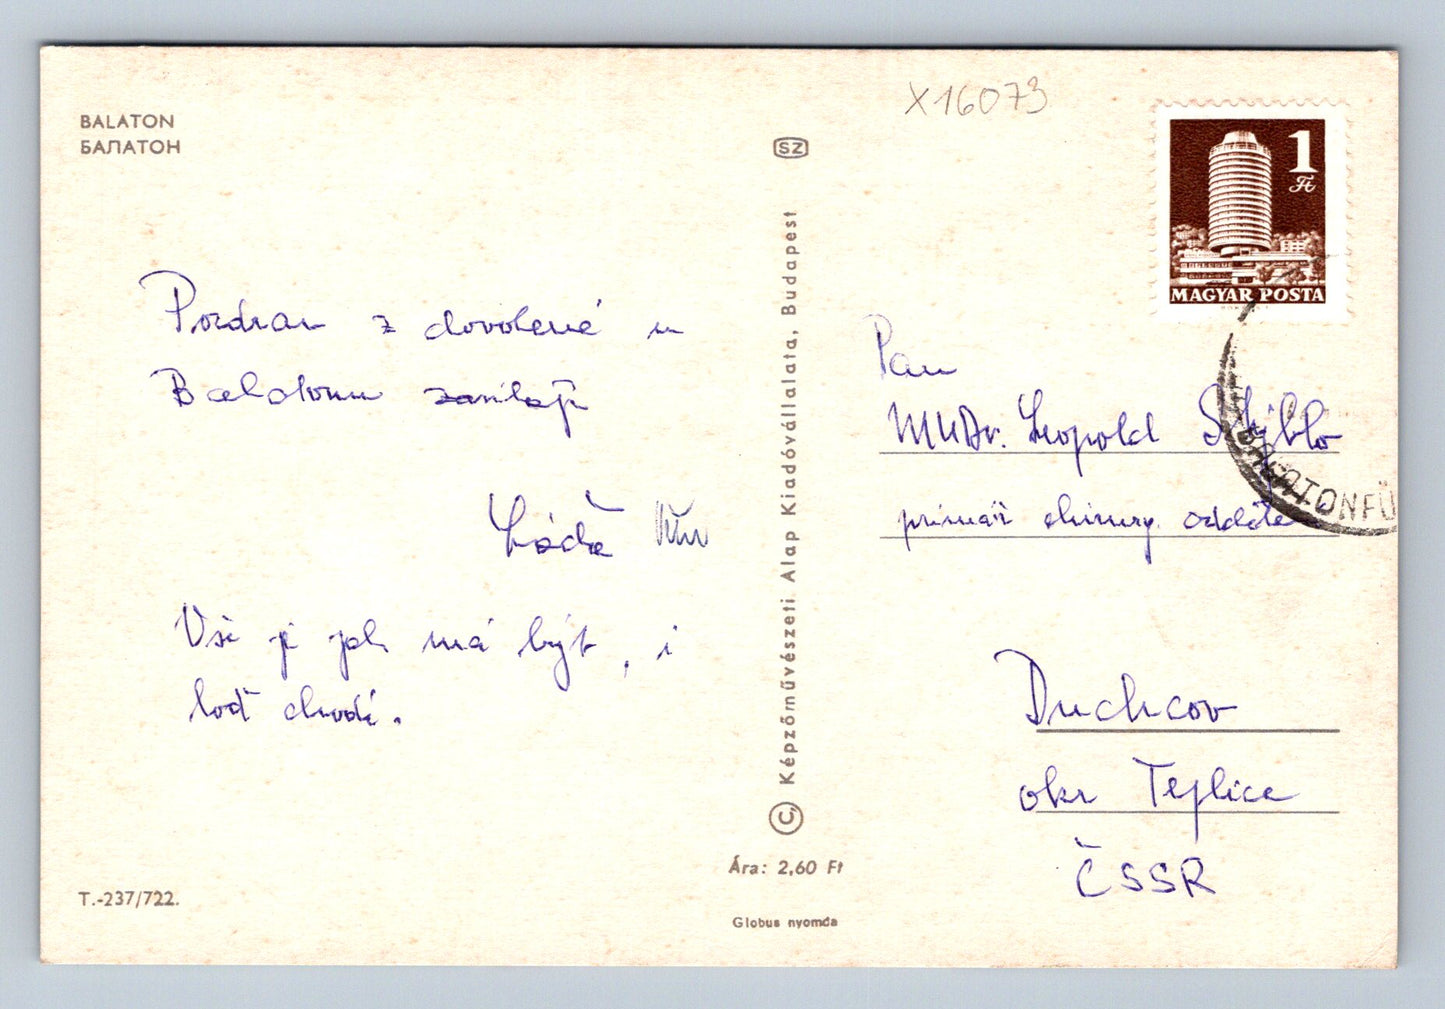 BALATON
БАЛАТОН
X16073
SZ
1
Ft
MAGYAR POSTA
BALATONFÜ
Pozdrav z dovolené u
Balatonu zasílají
Láďa
Vše je jak má být, i
loď chodí.
Képzőművészeti Alap Kiadóvállalata, Budapest
Pan
MUDr. Leopold
primář chirurg. odděle
Duchcov
okr Teplice
ČSSR
Ára: 2,60 Ft
T.-237/722.
Globus nyomda